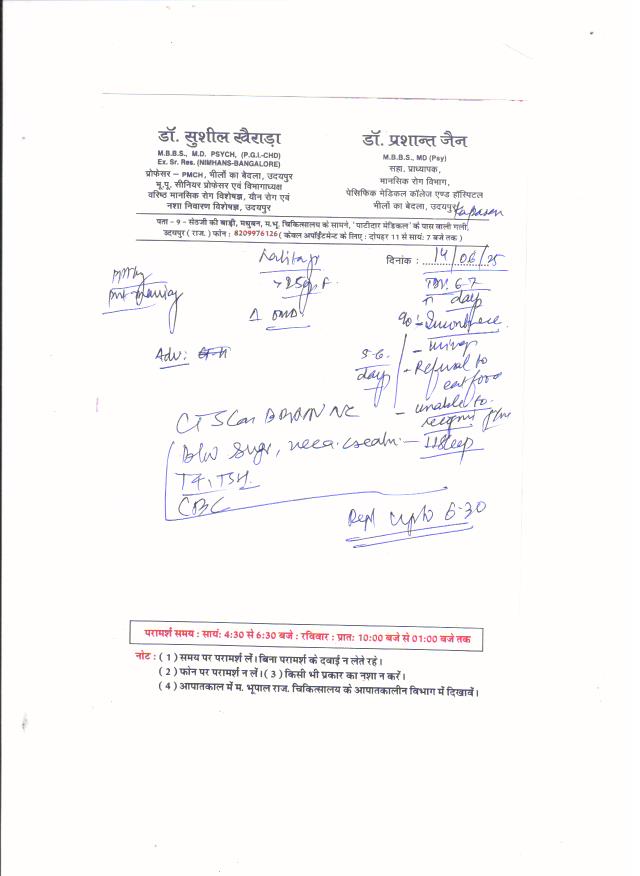 डॉ. सुशील खैराड़ा
M.B.B.S., M.D. PSYCH, (P.G.I.-CHD)
Ex. Sr. Res. (NIMHANS-BANGALORE)
प्रोफेसर – PMCH, भीलों का बेदला, उदयपुर
भू.पू. सीनियर प्रोफेसर एवं विभागाध्यक्ष
वरिष्ठ मानसिक रोग विशेषज्ञ, यौन रोग एवं
नशा निवारण विशेषज्ञ, उदयपुर
डॉ. प्रशान्त जैन
M.B.B.S., MD (Psy)
सहा. प्राध्यापक,
मानसिक रोग विभाग,
पेसिफिक मेडिकल कॉलेज एण्ड हॉस्पिटल
भीलों का बेदला, उदयपुर
पता - 9 - सेठजी की बाड़ी, मधुबन, म.भू. चिकित्सालय के सामने, 'पाटीदार मेडिकल' के पास वाली गली,
उदयपुर ( राज. ) फोन : 8209976126 ( केवल अपॉइंटमेन्ट के लिए : दोपहर 11 से सायं: 7 बजे तक )
दिनांक : 14/06/25
Lalita
6-7
day
Adv:
5-6
day
- Refusal to
eat food
- unable to
CT Scan BRAIN NC
- ↓Sleep
T4, TSH
CBC
Rept upto 6-30
परामर्श समय : सायं: 4:30 से 6:30 बजे : रविवार : प्रात: 10:00 बजे से 01:00 बजे तक
नोट : ( 1 ) समय पर परामर्श लें। बिना परामर्श के दवाई न लेते रहे।
( 2 ) फोन पर परामर्श न लें। ( 3 ) किसी भी प्रकार का नशा न करें।
( 4 ) आपातकाल में म. भूपाल राज. चिकित्सालय के आपातकालीन विभाग में दिखावें।